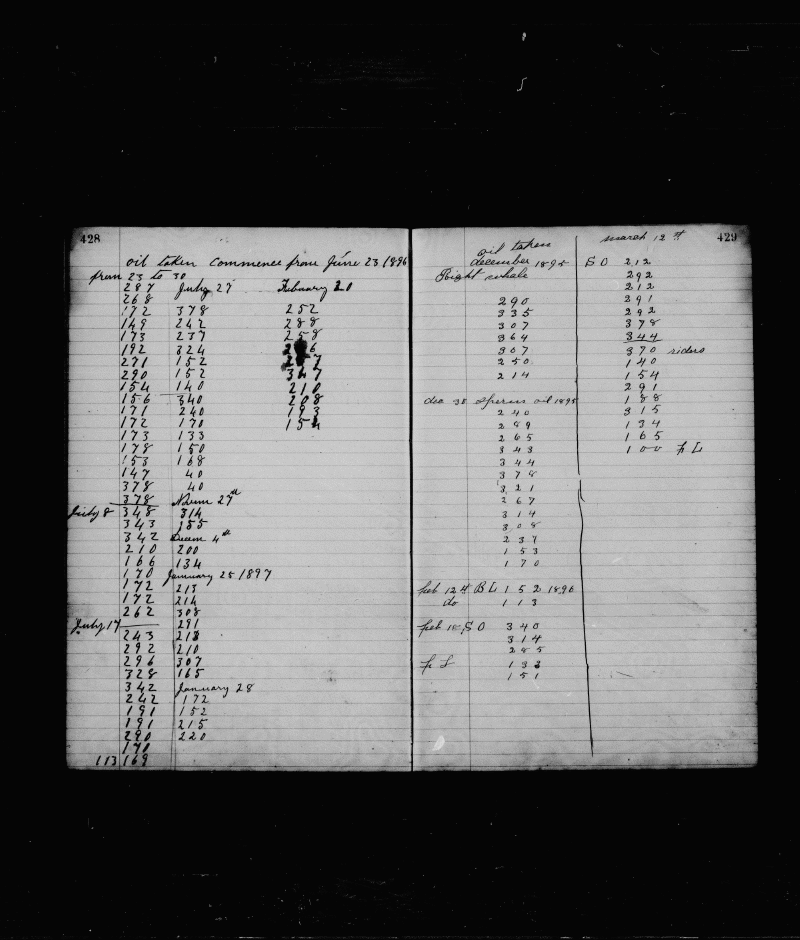 428
oil taken commence from June 23 1896
from 23 to 30
287
268
172
149
173
192
271
290
154
156
171
172
173
178
153
147
378
378
July 8 348
343
342
210
166
170
172
172
262
July 17
243
292
296
328
342
242
191
191
290
170
113 169
July 27
378
242
237
324
152
152
140
340
240
170
133
150
168
40
40
27th
314
155
Decem 4th
200
134
January 25 1897
213
214
308
291
218
210
307
165
January 28
172
152
215
220
Febuary 20
252
288
258
347
210
208
193
154
429
oil taken
december 1895
Right whale
290
335
307
364
307
250
214
dec 30 sperm oil 1895
240
289
265
343
344
378
321
267
314
308
237
153
170
feb 12th BL 152 1896
do 113
feb 18 SO 340
314
285
133
151
march 12th
SO 212
292
212
291
292
378
344
370 riders
140
154
291
188
315
134
165
100